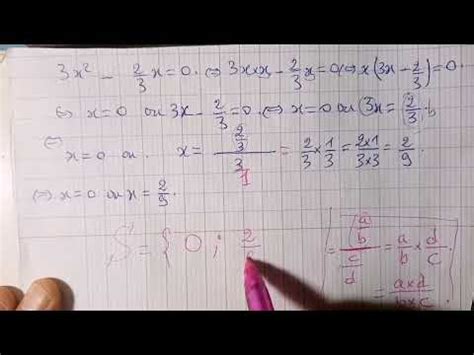 3x² - 2/3 x = 0 ⇔ 3x×x - 2/3 x = 0 ⇔ x(3x - 2/3) = 0.
⇔ x = 0 ou 3x - 2/3 = 0. ⇔ x = 0 ou 3x = 2/3 . b
⇔ x = 0 ou x = (2/3)/(3/1) = 2/3 × 1/3 = (2×1)/(3×3) = 2/9.
⇔ x = 0 ou x = 2/9.
S = { 0 ; 2/
= (a/b)/(c/d) = a/b × d/c.
= (a×d)/(b×c).